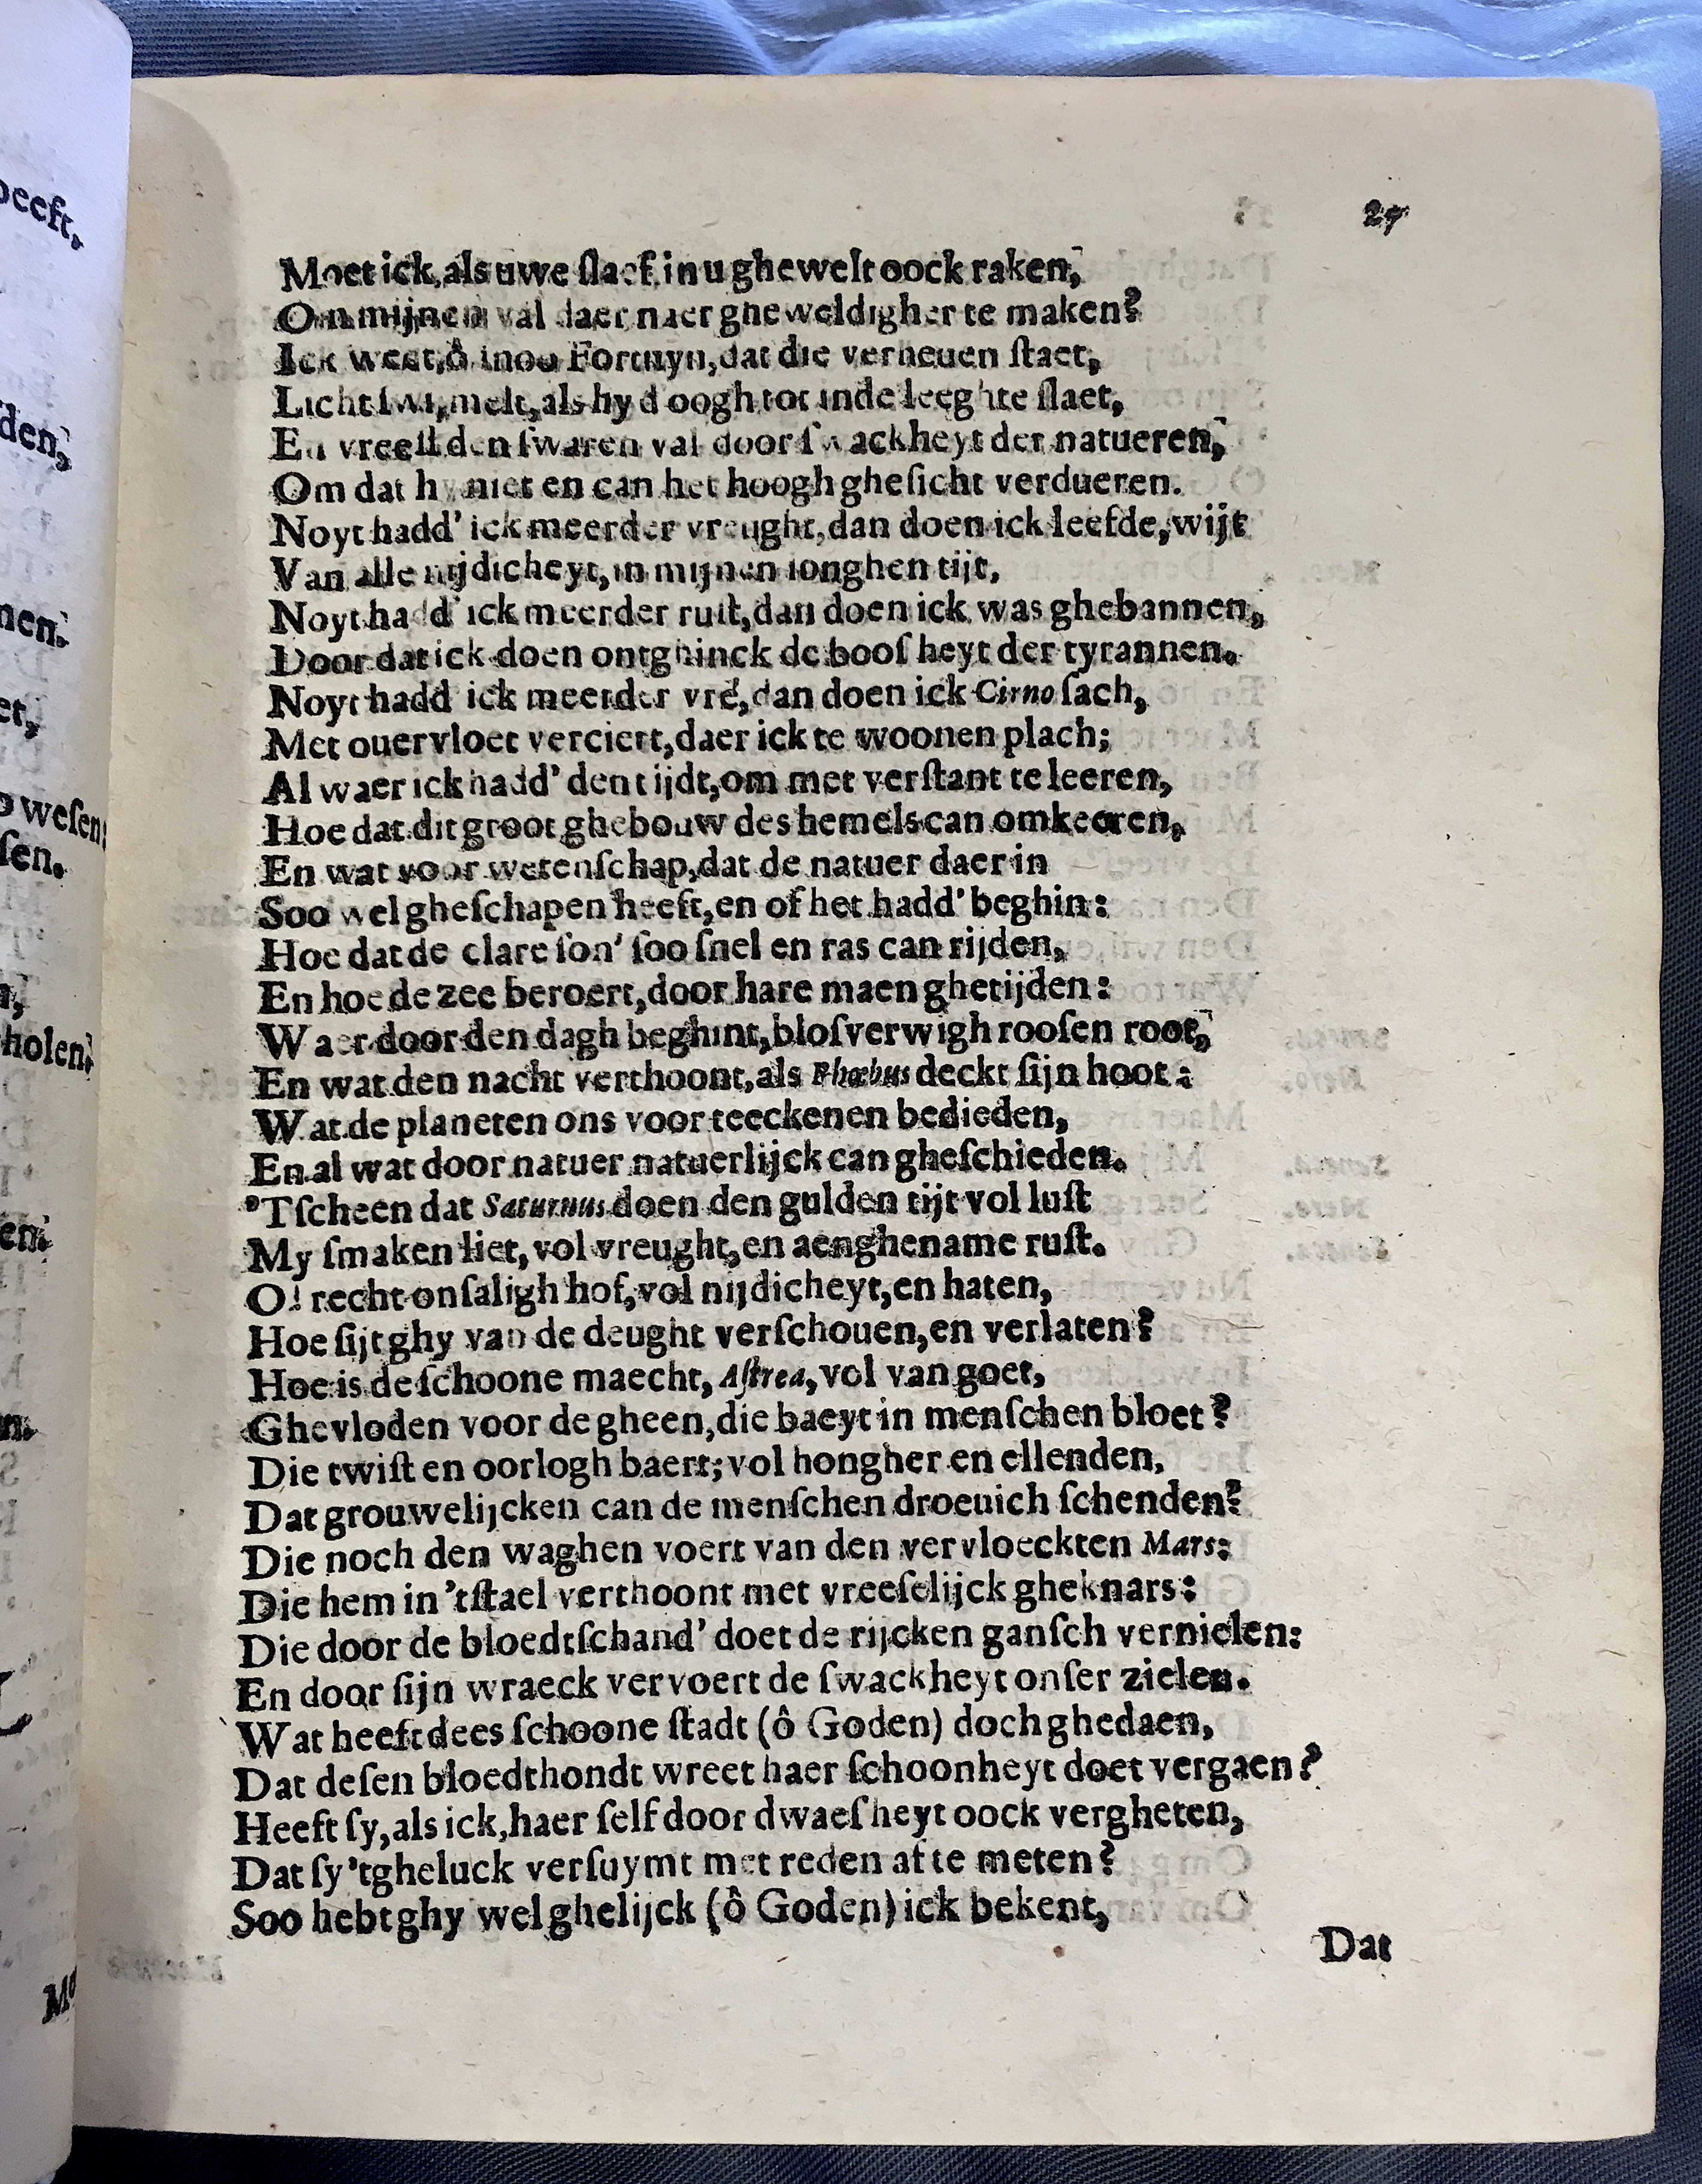 27
Moet ick, als uwe ſlaef in u ghewelt oock raken,
Om mijnen val daer naer gheweldigher te maken?
Ick weet, ô snoo Fortuyn, dat die verheuen ſtaet,
Licht ſwijmelt, als hy d'oogh tot inde leeghte ſlaet,
En vreeſt den ſwaren val door ſwackheyt der natueren,
Om dat hy niet en can het hoogh gheſicht verdueren.
Noyt hadd' ick meerder vreught, dan doen ick leefde, wijt
Van alle nijdicheyt, in mijnen ionghen tijt,
Noyt hadd' ick meerder ruſt, dan doen ick was ghebannen,
Door dat ick doen ontghinck de booſheyt der tyrannen.
Noyt hadd' ick meerder vré, dan doen ick Cirno ſach,
Met ouervloet verciert, daer ick te woonen plach;
Al waer ick hadd' den tijdt, om met verſtant te leeren,
Hoe dat dit groot ghebouw des hemels can omkeeren,
En wat voor wetenſchap, dat de natuer daer in
Soo wel gheſchapen heeft, en of het hadd' beghin:
Hoe dat de clare ſon' ſoo ſnel en ras can rijden,
En hoe de zee beroert, door hare maen ghetijden:
Waer door den dagh beghint, bloſverwigh rooſen root,
En wat den nacht verthoont, als Phœbus deckt ſijn hoot:
Wat de planeten ons voor teeckenen bedieden,
En al wat door natuer natuerlijck can gheſchieden.
'Tſcheen dat Saturnus doen den gulden tijt vol luſt
My ſmaken liet, vol vreught, en aenghename ruſt.
O! recht onſaligh hof, vol nijdicheyt, en haten,
Hoe ſijt ghy van de deught verſchouen, en verlaten?
Hoe is de ſchoone maecht, Aſtrea, vol van goet,
Ghevloden voor de gheen, die baeyt in menſchen bloet?
Die twiſt en oorlogh baert; vol hongher en ellenden,
Dat grouwelijcken can de menſchen droeuich ſchenden?
Die noch den waghen voert van den vervloeckten Mars:
Die hem in 'tſtael verthoont met vreeſelijck gheknars:
Die door de bloedtſchand' doet de rijcken ganſch vernielen:
En door ſijn wraeck vervoert de ſwackheyt onſer zielen.
Wat heeft dees ſchoone ſtadt (ô Goden) doch ghedaen,
Dat deſen bloedthondt wreet haer ſchoonheyt doet vergaen?
Heeft ſy, als ick, haer ſelf door dwaeſheyt oock vergheten,
Dat ſy 'tgheluck verſuymt met reden af te meten?
Soo hebt ghy wel ghelijck (ô Goden) ick bekent,
Dat